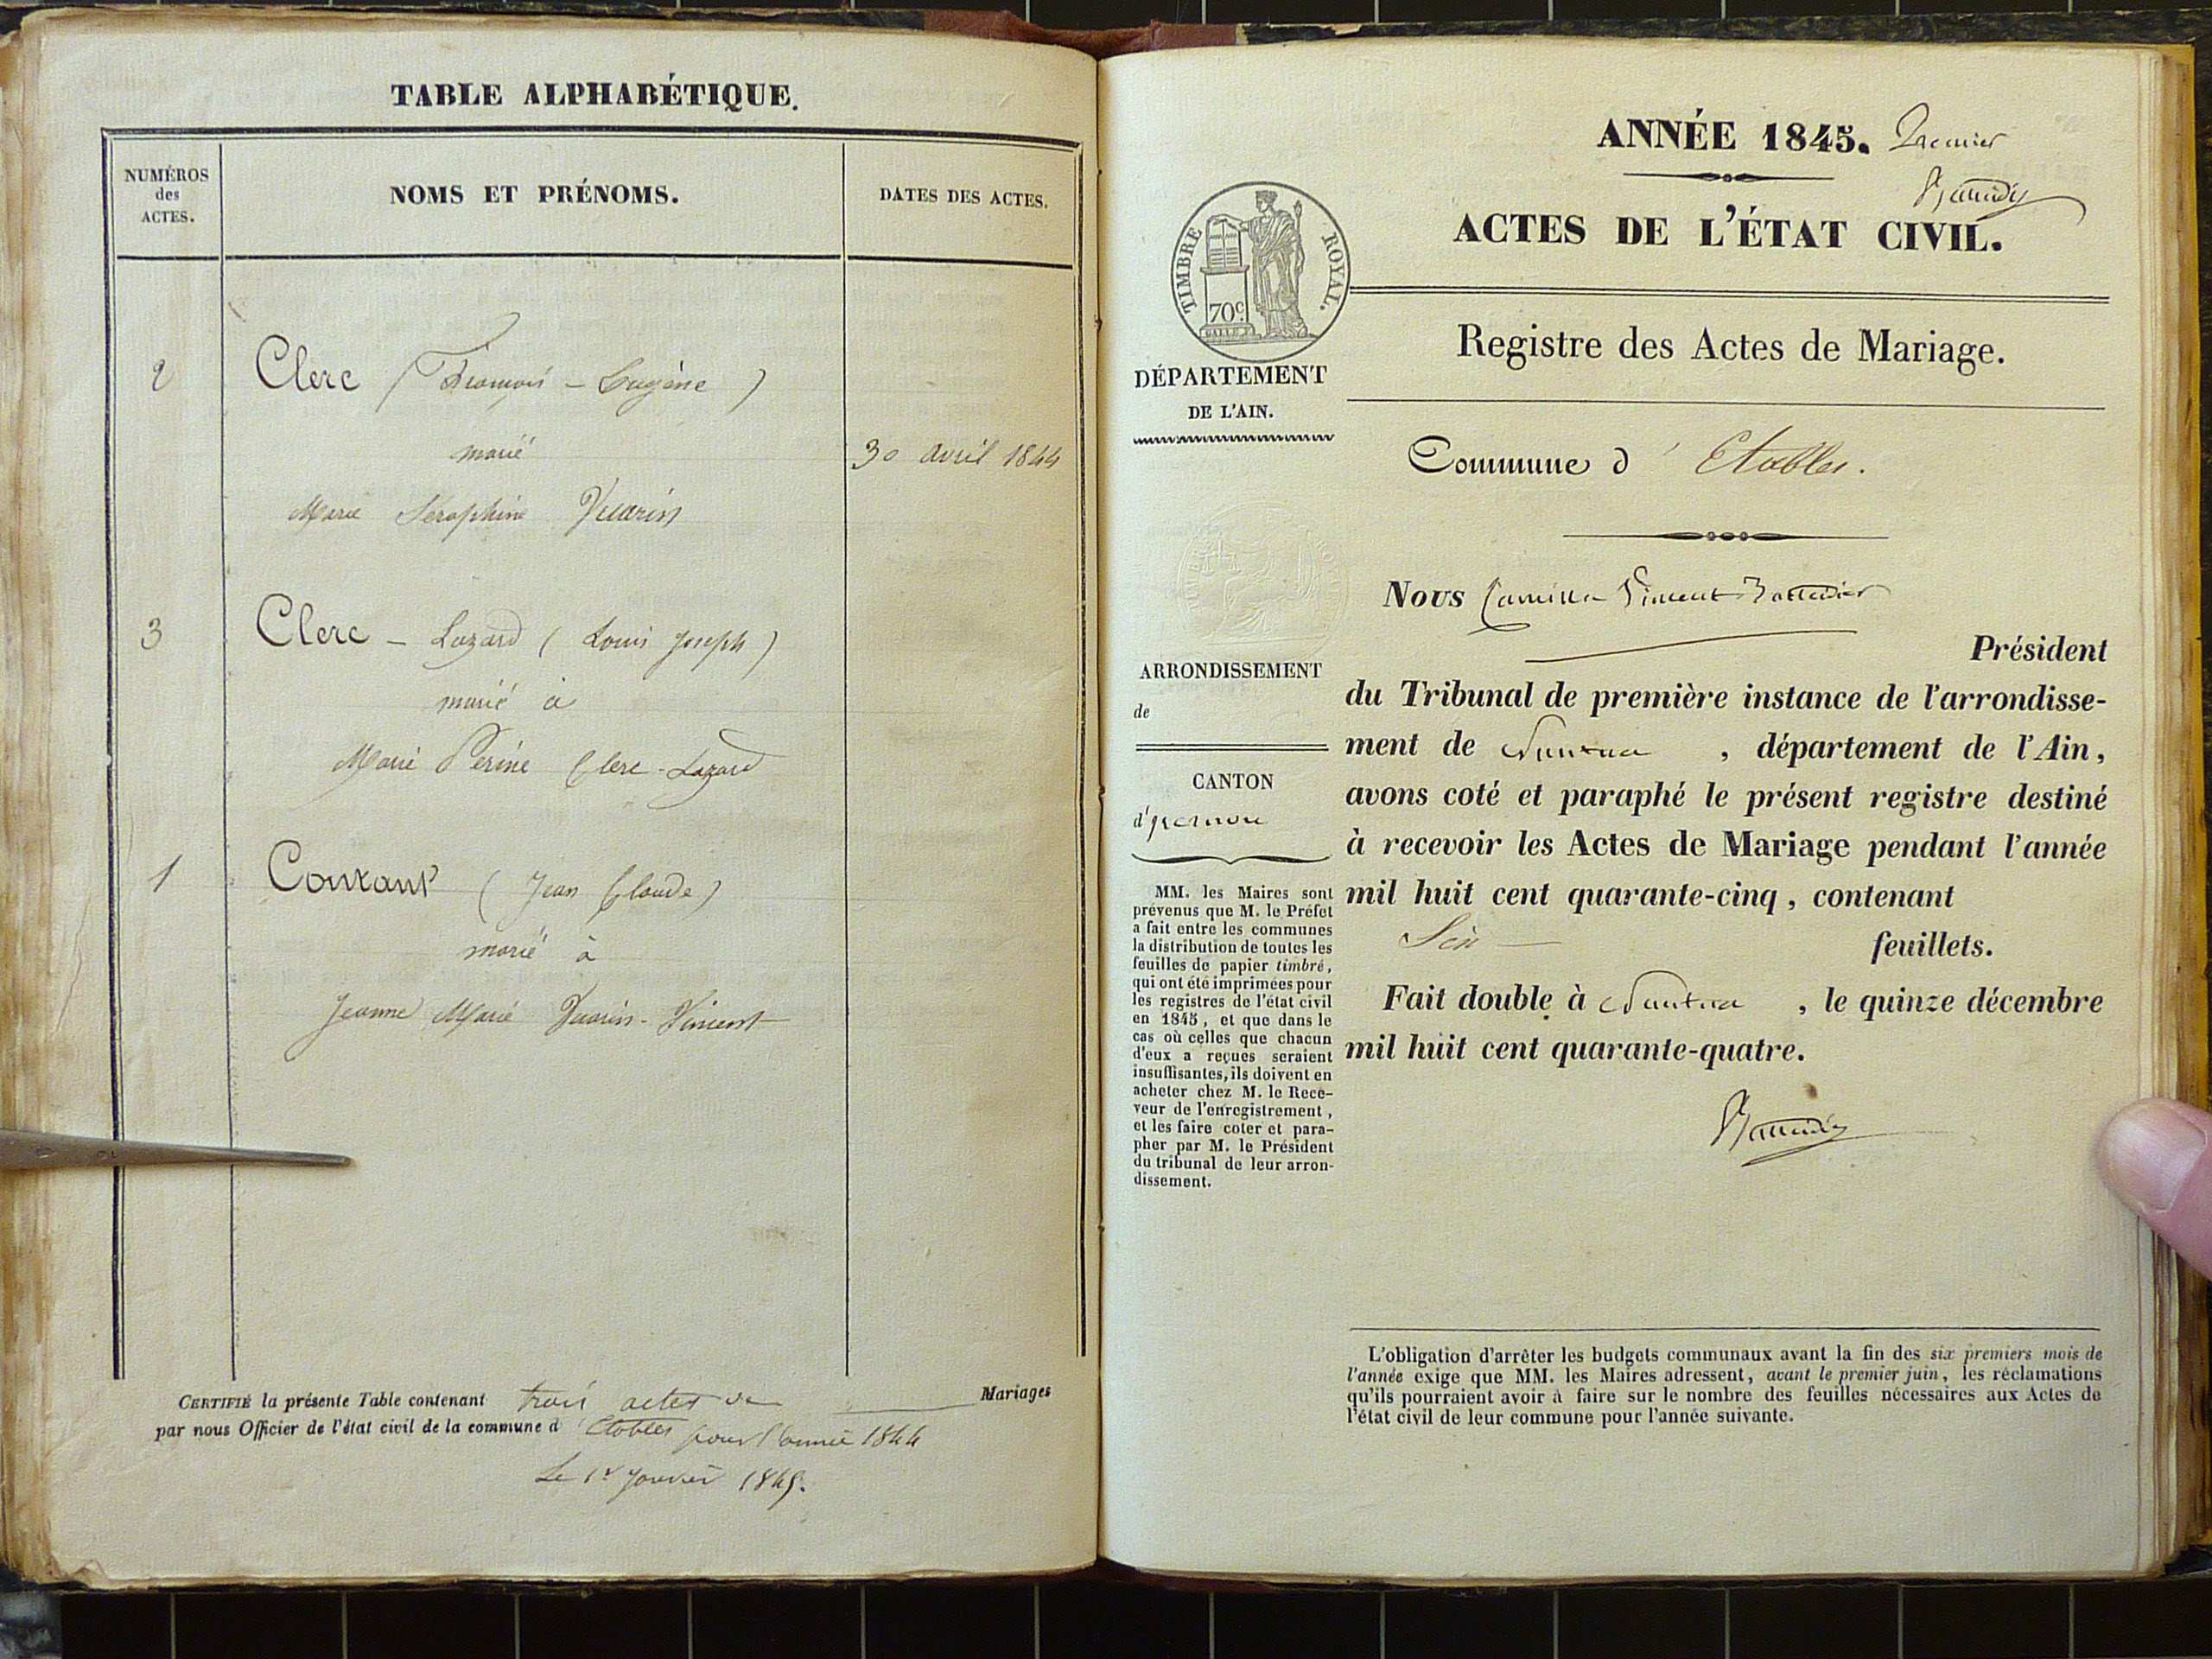 TABLE ALPHABÉTIQUE.
NUMÉROS
des
ACTES.
NOMS ET PRÉNOMS.
DATES DES ACTES.
2 Clerc (François - Eugène)
marié
30 avril 1844
Marie Séraphine Vuarin
3 Clerc - Lazard (Louis Joseph)
marié à
Marie Périne Clerc-Lazard
1 Coutant (Jean Claude)
marié à
Jeanne Marie Vuarin-Vincent
CERTIFIÉ la présente Table contenant trois actes de Mariages
par nous Officier de l'état civil de la commune d'Etables pour l'année 1844
Le 1er Janvier 1845.
ANNÉE 1845. Premier
ACTES DE L'ÉTAT CIVIL.
TIMBRE ROYAL.
70c
DÉPARTEMENT
DE L'AIN.
Registre des Actes de Mariage.
Commune d'Etables.
ARRONDISSEMENT
de
CANTON
d'izernore
MM. les Maires sont
prévenus que M. le Préfet
a fait entre les communes
la distribution de toutes les
feuilles de papier timbré,
qui ont été imprimées pour
les registres de l'état civil
en 1845, et que dans le
cas où celles que chacun
d'eux a reçues seraient
insuffisantes, ils doivent en
acheter chez M. le Rece-
veur de l'enregistrement,
et les faire coter et para-
pher par M. le Président
du tribunal de leur arron-
dissement.
Nous Camille Vincent
Président
du Tribunal de première instance de l'arrondisse-
ment de Nantua, département de l'Ain,
avons coté et paraphé le présent registre destiné
à recevoir les Actes de Mariage pendant l'année
mil huit cent quarante-cinq, contenant
Six feuillets.
Fait double à Nantua, le quinze décembre
mil huit cent quarante-quatre.
L'obligation d'arrêter les budgets communaux avant la fin des six premiers mois de
l'année exige que MM. les Maires adressent, avant le premier juin, les réclamations
qu'ils pourraient avoir à faire sur le nombre des feuilles nécessaires aux Actes de
l'état civil de leur commune pour l'année suivante.